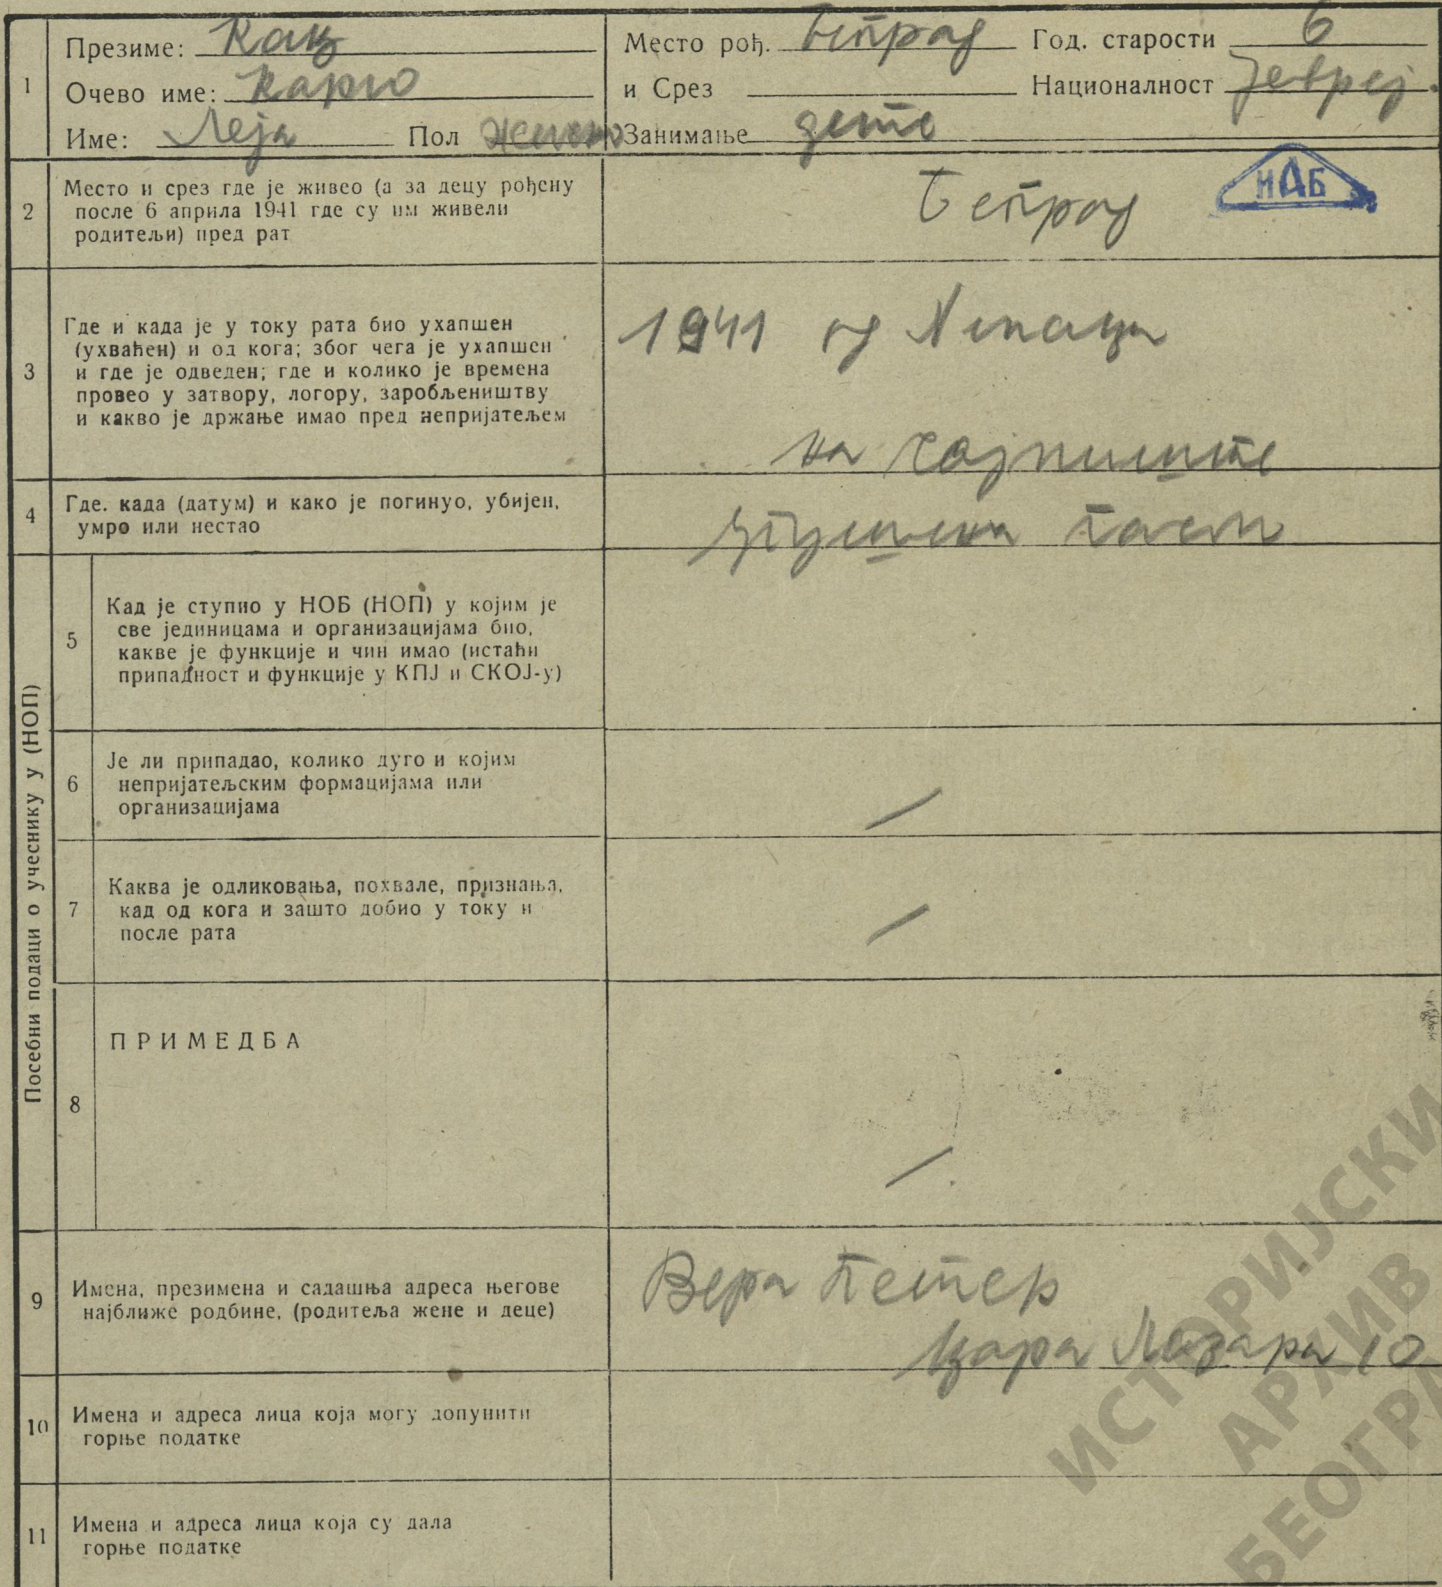 1
Презиме: Кац
Очево име: Карло
Име: Леја Пол женско
Место рођ. Београд Год. старости 6
и Срез Националност Јеврej.
Занимање дете
2
Место и срез где је живео (а за децу рођену
после 6 априла 1941 где су им живели
родитељи) пред рат
Београд
ИАБ
3
Где и када је у току рата био ухапшен
(ухваћен) и од кога; због чега је ухапшен
и где је одведен; где и колико је времена
провео у затвору, логору, заробљеништву
и какво је држање имао пред непријатељем
1941 од Немаца
на Сајмиште
4
Где. када (датум) и како је погинуо, убијен,
умро или нестао
угушена гасом
Посебни подаци о учеснику у (НОП)
5
Кад је ступио у НОБ (НОП) у којим је
све јединицама и организацијама био,
какве је функције и чин имао (истаћи
припадност и функције у КПЈ и СКОЈ-у)
6
Је ли припадао, колико дуго и којим
непријатељским формацијама или
организацијама
/
7
Каква је одликовања, похвале, признања,
кад од кога и зашто добио у току и
после рата
/
8
ПРИМЕДБА
/
9
Имена, презимена и садашња адреса његове
најближе родбине, (родитеља жене и деце)
Вера
Цара Лазара 10
10
Имена и адреса лица која могу допунити
горње податке
11
Имена и адреса лица која су дала
горње податке
ИСТОРИЈСКИ
АРХИВ
БЕОГРА